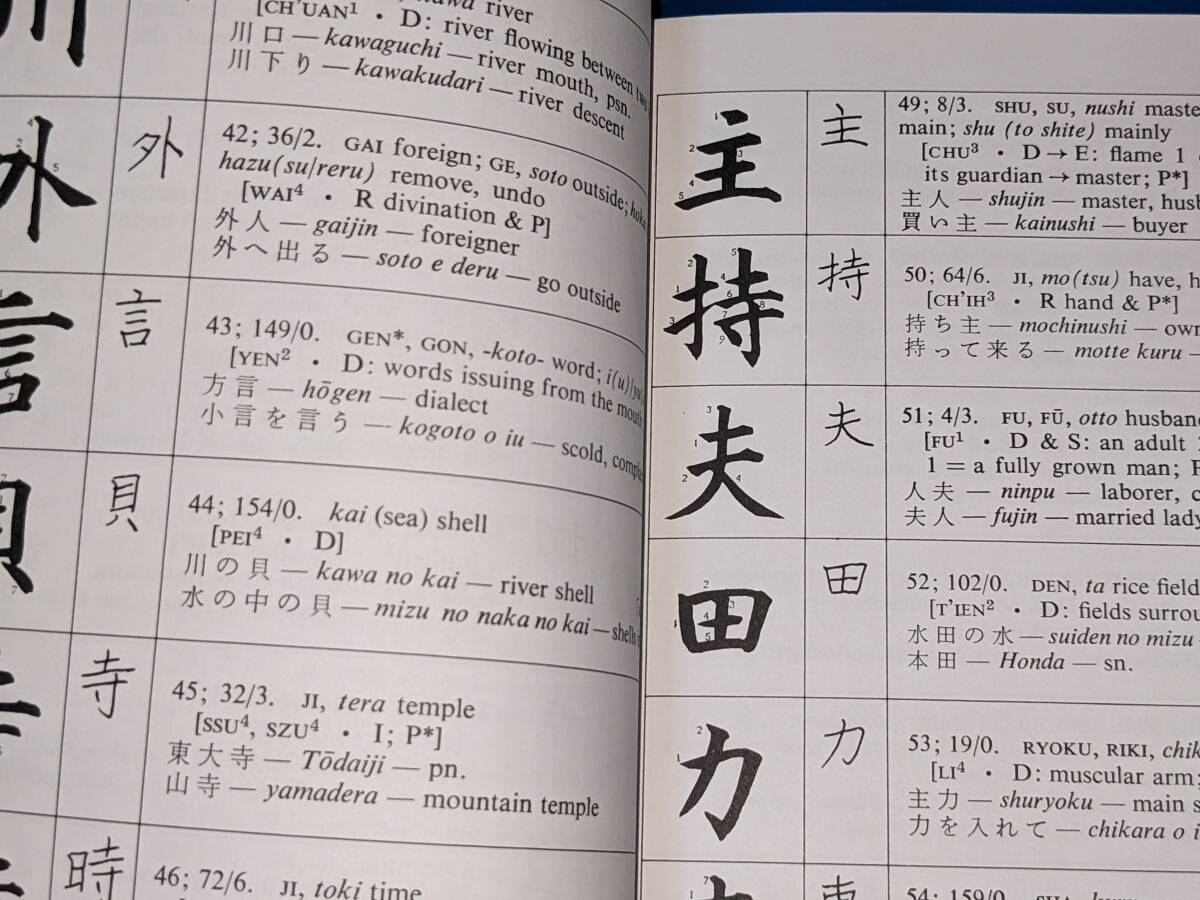 川
river
[CH'UAN¹ · D: river flowing between two
川口 — kawaguchi — river mouth, psn.
川下り — kawakudari — river descent
外
外
42; 36/2. GAI foreign; GE, soto outside; hoka
hazu(su/reru) remove, undo
[WAI⁴ · R divination & P]
外人 — gaijin — foreigner
外へ出る — soto e deru — go outside
言
言
43; 149/0. GEN*, GON, -koto- word; i(u)/yu
[YEN² · D: words issuing from the mouth
方言 — hōgen — dialect
小言を言う — kogoto o iu — scold,
貝
貝
44; 154/0. kai (sea) shell
[PEI⁴ · D]
川の貝 — kawa no kai — river shell
水の中の貝 — mizu no naka no kai — shells
寺
寺
45; 32/3. JI, tera temple
[SSU⁴, SZU⁴ · I; P*]
東大寺 — Tōdaiji — pn.
山寺 — yamadera — mountain temple
時
46; 72/6. JI, toki time
主
主
49; 8/3. SHU, SU, nushi maste
main; shu (to shite) mainly
[CHU³ · D → E: flame 1
its guardian → master; P*]
主人 — shujin — master, husb
買い主 — kainushi — buyer
持
持
50; 64/6. JI, mo(tsu) have, h
[CH'IH³ · R hand & P*]
持ち主 — mochinushi — own
持って来る — motte kuru —
夫
夫
51; 4/3. FU, FŪ, otto husban
[FU¹ · D & S: an adult
1 = a fully grown man;
人夫 — ninpu — laborer, c
夫人 — fujin — married lady
田
田
52; 102/0. DEN, ta rice field
[T'IEN² · D: fields surrou
水田の水 — suiden no mizu
本田 — Honda — sn.
力
力
53; 19/0. RYOKU, RIKI, chik
[LI⁴ · D: muscular arm;
主力 — shuryoku — main s
力を入れて — chikara o i
54; 159/0.